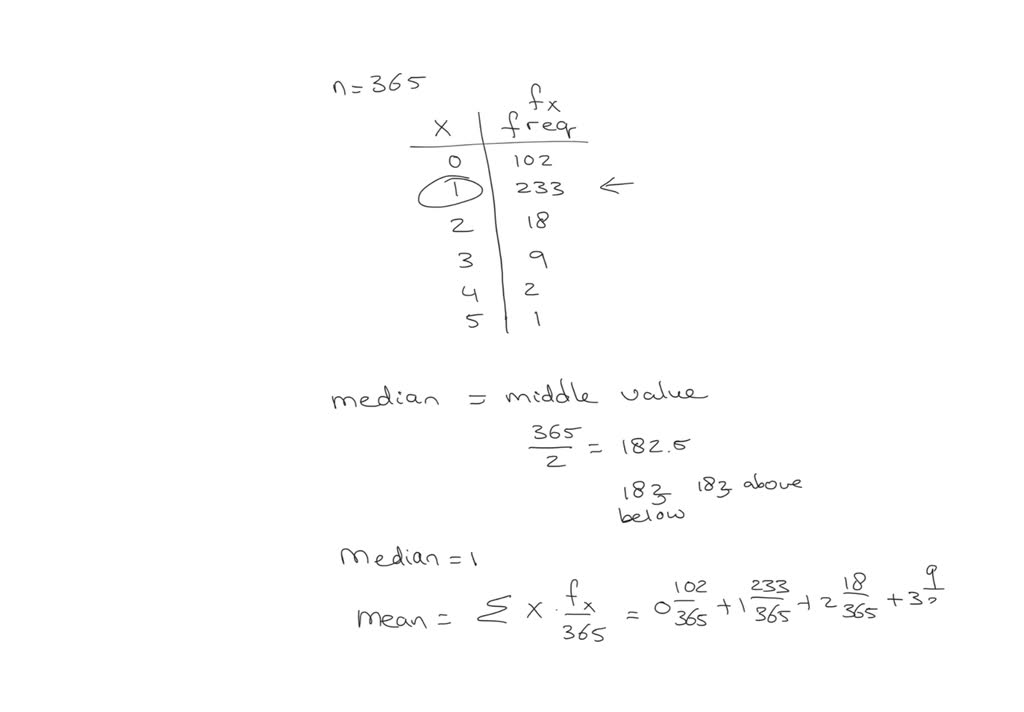 n=365
fx
x freq
0 102
1 233 ←
2 18
3 9
4 2
5 1
median = middle value
365/2 = 182.5
183 183 above
below
median = 1
mean = Σ x · fx/365 = 0 102/365 + 1 233/365 + 2 18/365 + 3 9/